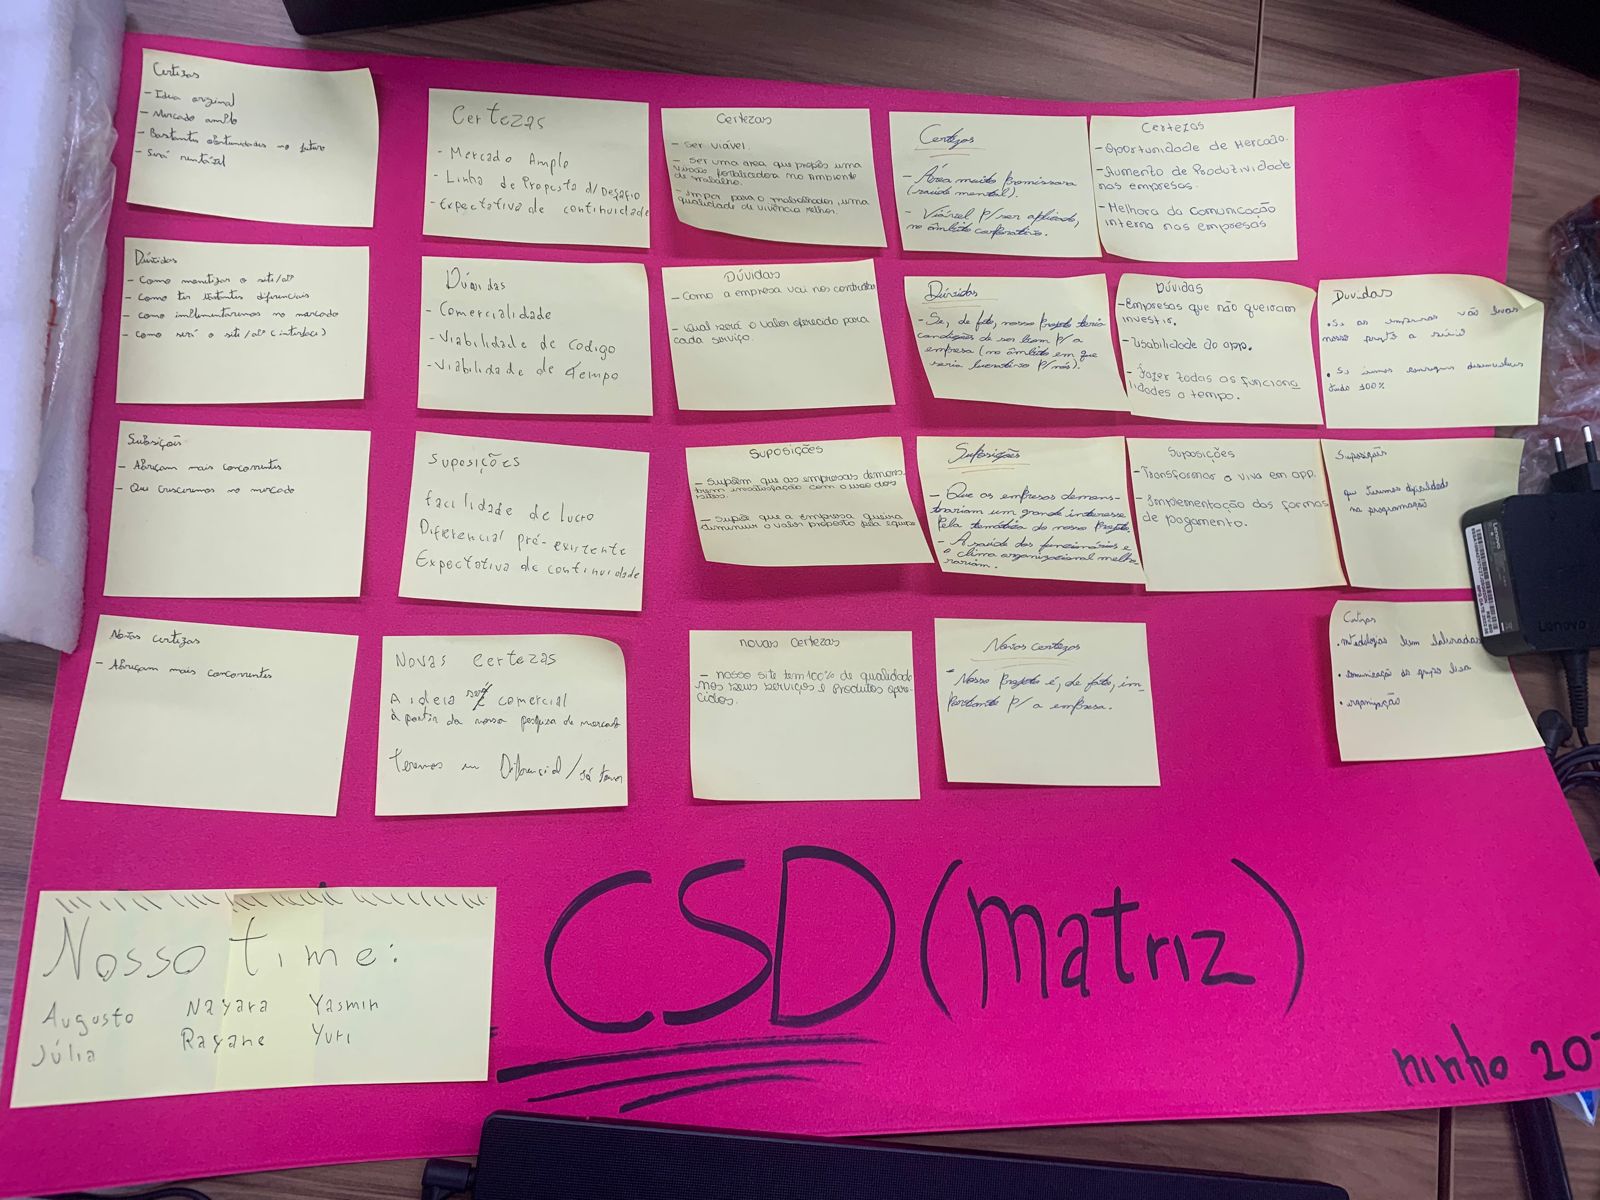 Certezas
- Ideia original
- Mercado amplo
- Bastantes obntunidades no futuro
- Será rentável
Certezas
- Mercado Amplo
- Linha de Proposta d/ Desafio
- Expectativa de continuidade
Certezas
- Ser viável.
- Ser uma área que propõe uma
visão fortalecedora no ambiente
de trabalho.
- Impor para o trabalhador, uma
qualidade de vivência melhor.
Certezas
- Área muito promissora
(saúde mental).
- Viável p/ ser aplicado,
no âmbito corporativo.
Certezas
- Oportunidade de Mercado.
- Aumento de Produtividade
nas empresas.
- Melhora da Comunicação
interna nas empresas
Dúvidas
- Como monetizar o site/app
- Como ter bastantes diferenciais
- Como implementaremos no mercado
- Como será o site/app (interface)
Dúvidas
- Comercialidade
- Viabilidade de Codigo
- Viabilidade de Tempo
Dúvidas
- Como a empresa vai nos contratar
- Qual será o valor oferecido para
cada serviço.
Dúvidas
- Se, de fato, nosso projeto teria
condições de ser bom p/ a
empresa (no âmbito em que
seria lucrativo p/ nós).
Dúvidas
- Empresas que não queiram
investir.
- Usabilidade do app.
- Fazer todas as funciona
lidades a tempo.
Duvidas
• Se as empresas vão levar
nosso projeto a sério
• Se iremos conseguir desenvolver
tudo 100%
Subsições
- Abriram mais concorrentes
- Que cresceremos no mercado
Suposições
Facilidade de lucro
Diferencial pré-existente
Expectativa de continuidade
Suposições
- Supõem que as empresas demons
trem insatisfação com o uso dos
sites
- Supõe que a empresa queira
diminuir o valor proposto pela equipe
Suposições
- Que as empresas demons-
trariam um grande interesse
pela temática do nosso projeto.
- A saúde dos funcionários e
o clima organizacional melho
rariam.
Suposições
- Transformar a viva em app.
- Implementação das formas
de pagamento.
Suposições
que teremos dificuldade
na programação
Novas certezas
- Abriram mais concorrentes
Novas Certezas
A ideia será comercial
à partir da nossa pesquisa de mercado
Teremos um Diferencial / já temos
Novas Certezas
- Nosso site tem 100% de qualidade
nos seus serviços e produtos ofere-
cidos.
Novas certezas
- Nosso Projeto é, de fato, im-
portante p/ a empresa.
• metodologias bem
• comunicação do grupo boa
• organização
Nosso time:
Augusto Nayara Yasmin
Júlia Rayane Yuri
CSD (Matriz)
ninho 20
Lenovo